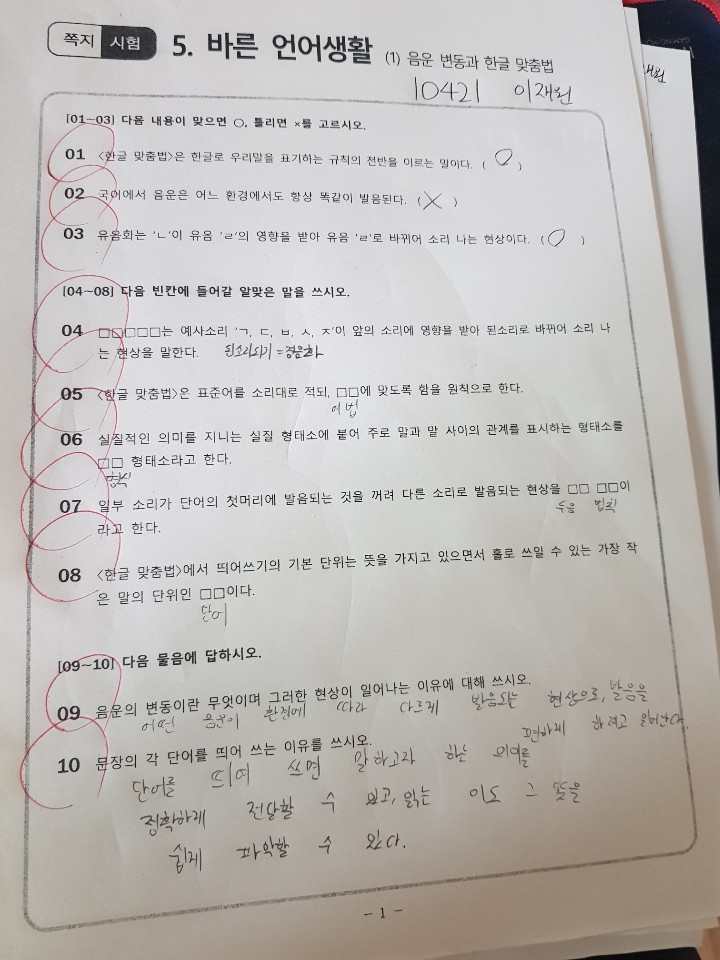 쪽지 시험 5. 바른 언어생활 (1) 음운 변동과 한글 맞춤법
10421 이재원
재원
[01~03] 다음 내용이 맞으면 ○, 틀리면 ×를 고르시오.
01 <한글 맞춤법>은 한글로 우리말을 표기하는 규칙의 전반을 이르는 말이다. ( ○ )
02 국어에서 음운은 어느 환경에서도 항상 똑같이 발음된다. ( × )
03 유음화는 'ㄴ'이 유음 'ㄹ'의 영향을 받아 유음 'ㄹ'로 바뀌어 소리 나는 현상이다. ( ○ )
[04~08] 다음 빈칸에 들어갈 알맞은 말을 쓰시오.
04 □□□□□는 예사소리 'ㄱ, ㄷ, ㅂ, ㅅ, ㅈ'이 앞의 소리에 영향을 받아 된소리로 바뀌어 소리 나
는 현상을 말한다. 된소리되기=경음화
05 <한글 맞춤법>은 표준어를 소리대로 적되, □□에 맞도록 함을 원칙으로 한다.
어법
06 실질적인 의미를 지니는 실질 형태소에 붙어 주로 말과 말 사이의 관계를 표시하는 형태소를
□□ 형태소라고 한다.
형식
07 일부 소리가 단어의 첫머리에 발음되는 것을 꺼려 다른 소리로 발음되는 현상을 □□ □□이
두음 법칙
라고 한다.
08 <한글 맞춤법>에서 띄어쓰기의 기본 단위는 뜻을 가지고 있으면서 홀로 쓰일 수 있는 가장 작
은 말의 단위인 □□이다.
단어
[09~10] 다음 물음에 답하시오.
09 음운의 변동이란 무엇이며 그러한 현상이 일어나는 이유에 대해 쓰시오.
어떤 음운이 환경에 따라 다르게 발음되는 현상으로, 발음을
편하게 하려고 일어난다.
10 문장의 각 단어를 띄어 쓰는 이유를 쓰시오.
단어를 띄어 쓰면 말하고자 하는 의미를
정확하게 전달할 수 있고, 읽는 이도 그 뜻을
쉽게 파악할 수 있다.
- 1 -